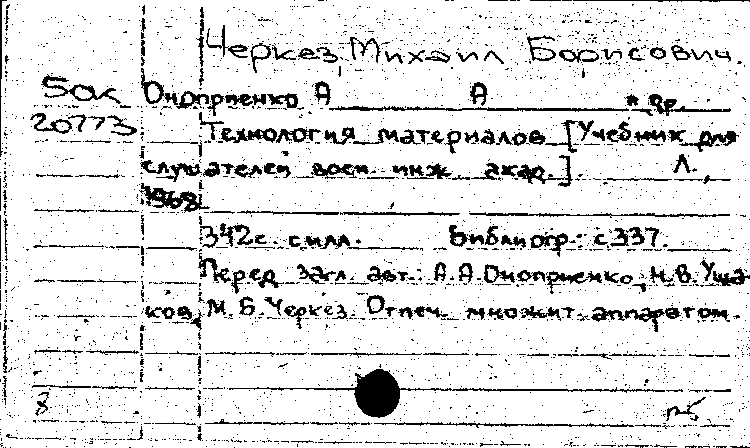 Черкез, Михаил Борисович.
Бак Оноприенко А А и др.
20773 Технология материалов [Учебник для
слушателей воен. инж. акад.]. Л.,
1968
342с. с илл. Библиогр.: с 337.
Перед загл. авт.: А.А. Оноприенко, Н.В. Уша-
ков, М.Б. Черкез. Отпеч. множит. аппаратом.
8